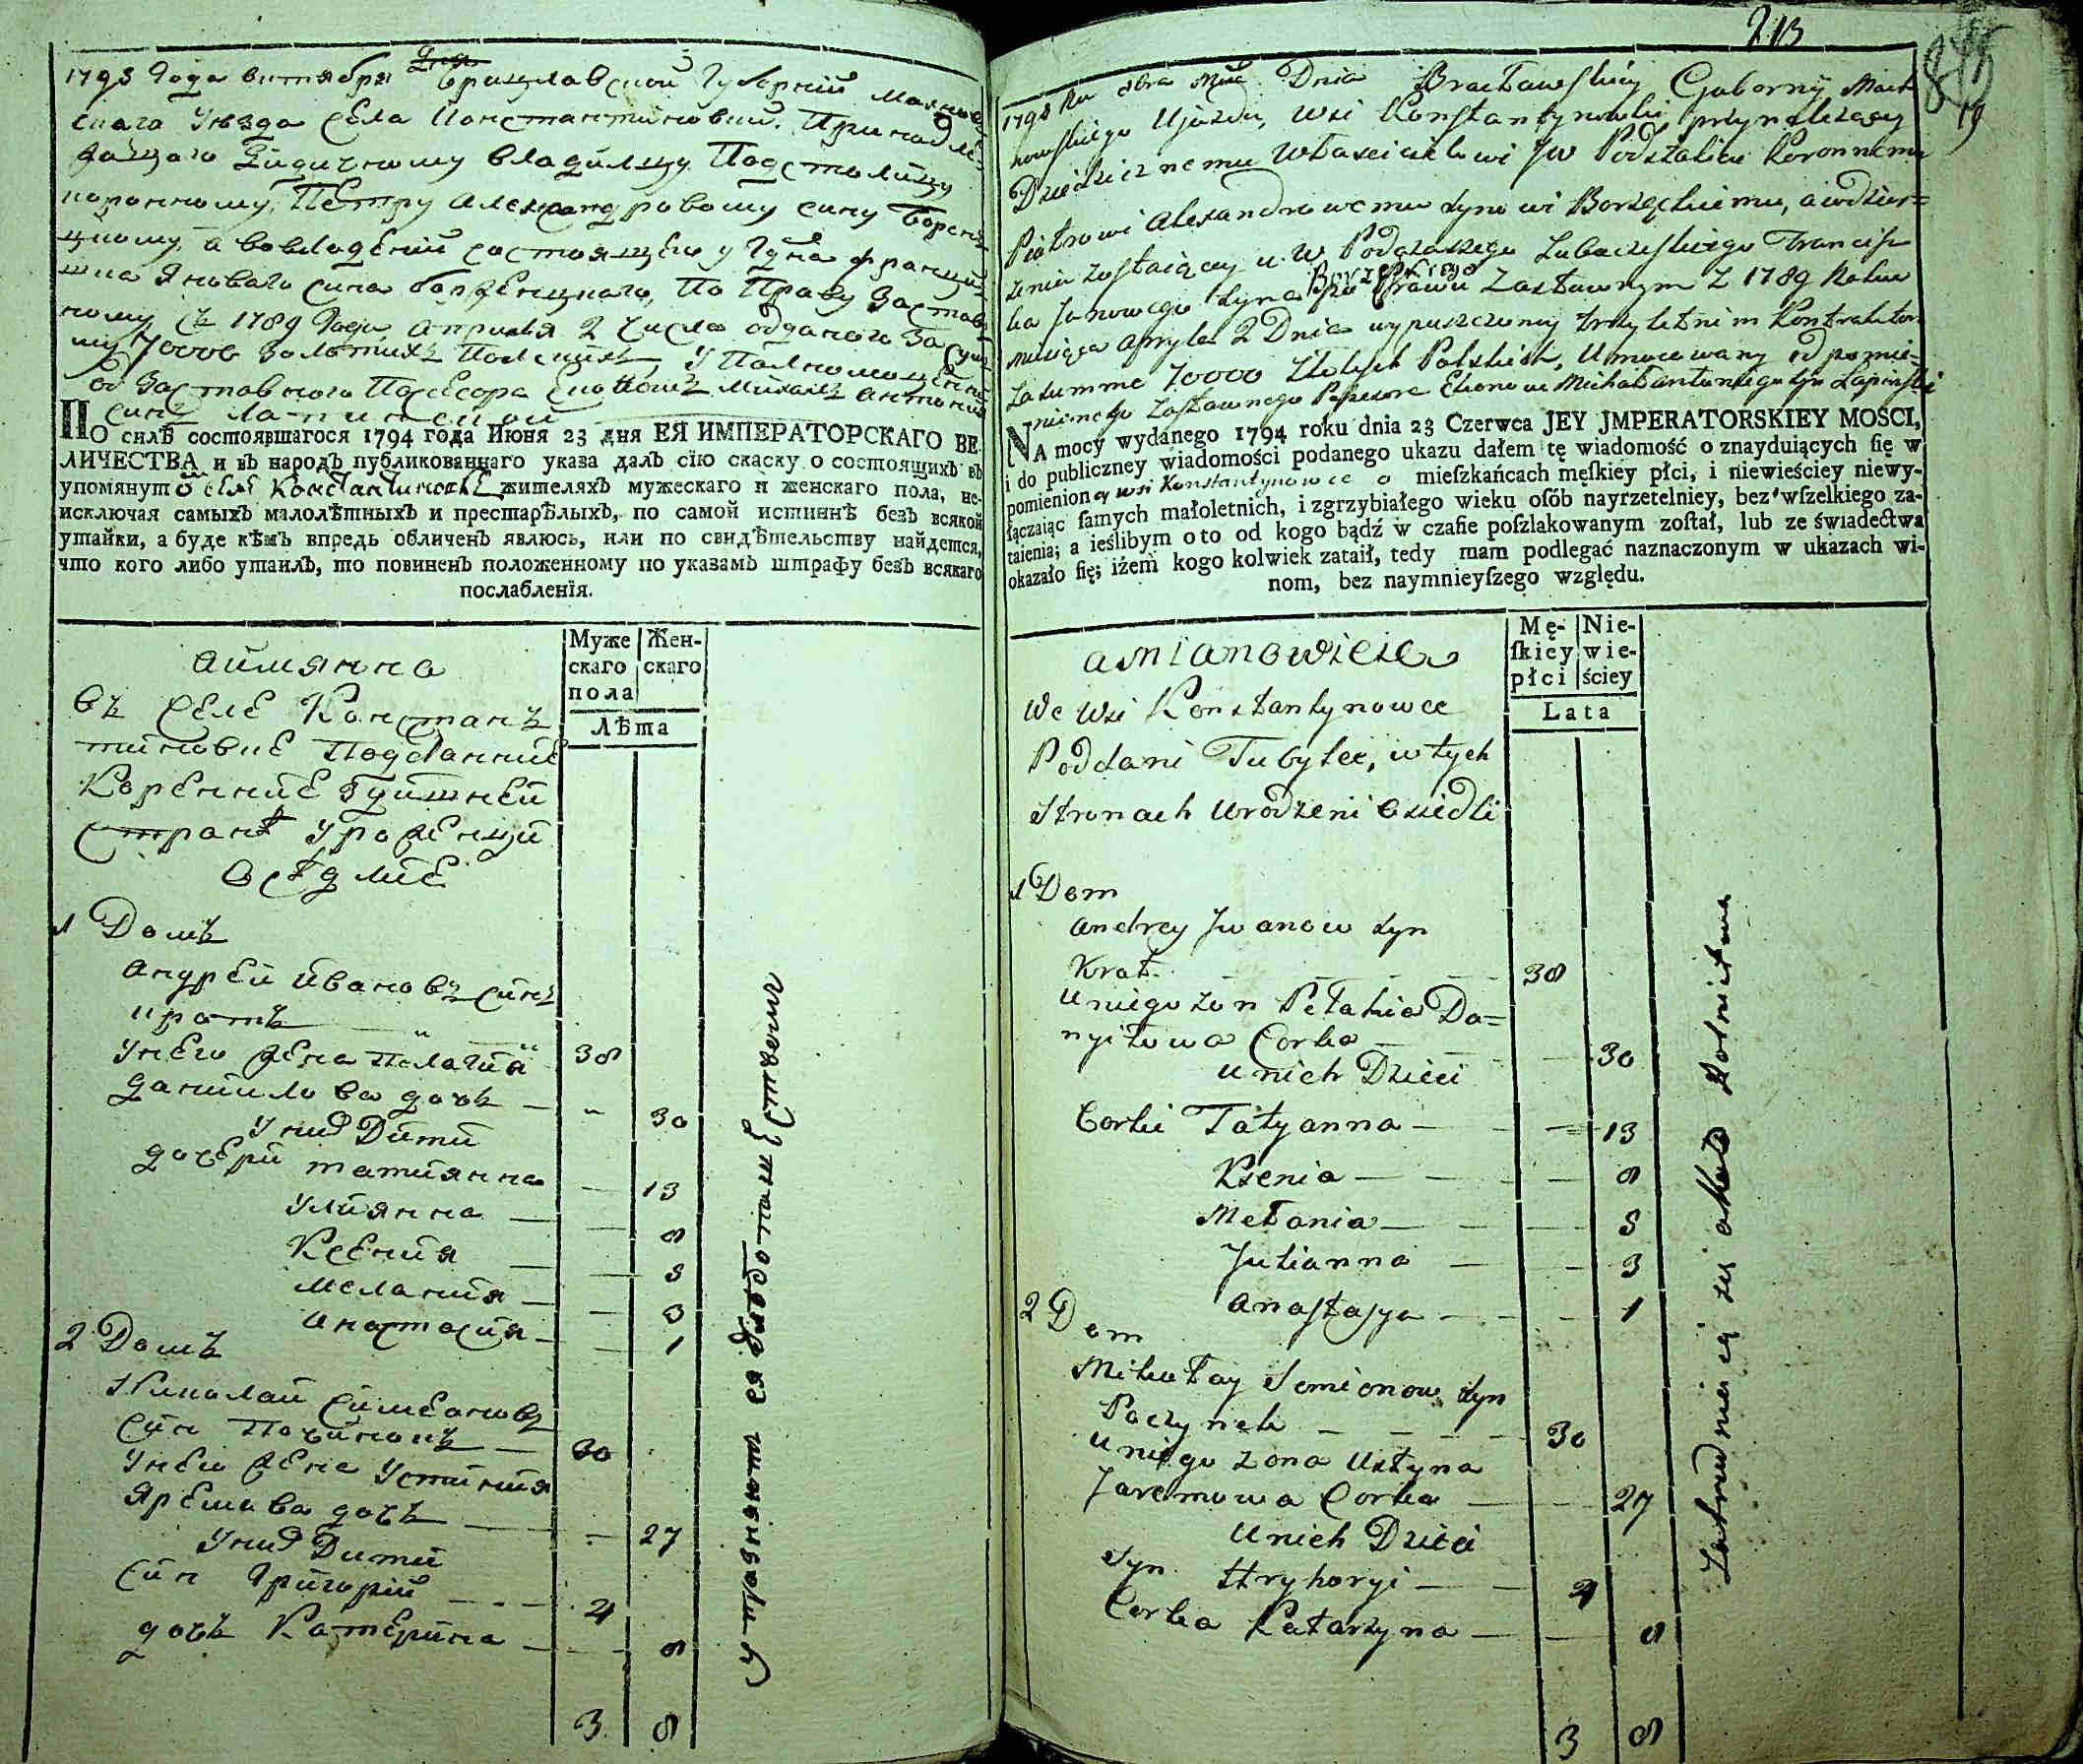 1795 Года октября Дня Брацлавской Губерніи Махнов
скаго Уѣзда Села Константиновки. Принадле-
жащаго Дидичному владѣлцу Подстолицу
коронному, Петру Александровому сину Борен-
цкому, а вовладѣніи состоящего у Гдна Франци-
шка Яноваго сина борженцкаго, По Праву Застав-
ному Съ 1789 Года Априля 2 числа отданого За сум-
му 70000 золотихъ Полскихъ, Уполномоченний
од Заставного Посесора Економъ Михаилъ Антоний
синъ Лапинской
ПО силѣ состоявшагося 1794 года Июня 23 дня ЕЯ ИМПЕРАТОРСКАГО ВЕ-
ЛИЧЕСТВА и въ народъ публикованнаго указа далъ сію скаску о состоящихъ въ
упомянутой селѣ Константиновкѣ жителяхъ мужескаго и женскаго пола, не-
исключая самыхъ малолѣтныхъ и престарѣлыхъ, по самой истиннѣ безъ всякой
утайки, а буде кѣмъ впредь обличенъ явлюсь, или по свидѣтельству найдется,
что кого либо утаилъ, то повиненъ положенному по указамъ штрафу безъ всякаго
послабленія.
Муже Жен-
скаго скаго
пола
Лѣта
аимянно
въ Селе Констанъ
тиновке Подданние
Коренние Тутшней
странѣ Уроженци
осѣдлие
1 Домъ
Андрей Ивановъ синъ
кратъ 38
Унего жена Пелагия
данилова дочь — 30
Уних Дити
дочери татиянна — 13
Улиянна — 8
Ксения — 5
Мелания — 3
Анастасия — 1
2 Домъ
Николай Симеоновъ
Син Починокъ — 30
Унего жена Устиния
Яремова дочь — 27
Уних Дити
Син Григорій — 4
дочь Катерина — 8
3 8
Упражняются въ хлѣбопашествѣ
213
19
1795 Ru 8bra Mca Dnia Bracławskiey Gubernij Mach
nowskiego Ujazdu, wsi Konstantynowki, przynależącey
Dziedzicznemu właścicielowi JW Podstolicu Koronnemu
Piotrowi Alexandrowemu synowi Borzęckiemu, a w dzier=
żeniu zostaiącey u W Podczaszego Lubaczeskiego Francisz
ka Janowego syna Borzęckiego po Prawu Zastawnym z 1789 Roku
miesiąca Apryla 2 Dnia wypuszczoney trzyletnim Kontraktem
za summe 70000 złotych Polskich, Umocowany od pomie=
nionego Zastawnego Possesora Ekonom Michał Antoniego syn Lapinski
NA mocy wydanego 1794 roku dnia 23 Czerwca JEY JMPERATORSKIEY MOSCI,
i do publiczney wiadomości podanego ukazu dałem tę wiadomość o znayduiących ſię w
pomienioney wsi Konstantynowce o mieſzkańcach męſkiey płci, i niewieściey niewy-
łączaiąc ſamych małoletnich, i zgrzybiałego wieku oſób nayrzetelniey, bez wſzelkiego za-
taienia; a ieślibym oto od kogo bądź w czaſie poſzlakowanym zoſtał, lub ze świadectwa
okazało ſię; iżem kogo kolwiek zataił, tedy mam podlegać naznaczonym w ukazach wi-
nom, bez naymnieyſzego względu.
Mę- Nie-
ſkiey wie-
płci ściey
Lata
a mianowicie
We Wsi Konstantynowce
Poddani Tubylce, w tych
Stronach Urodzeni Osiedli
1 Dom
Andrey Jwanow syn
Krat — 38
U niego żon Pelahia Da=
nyiłowa Corka — 30
U nich Dzieci
Corki Tatyanna — 13
Ksenia — 8
Melania — 5
Julianna — 3
Anastasya — 1
2 Dom
Mikołay Semionow syn
Poczynek — 30
U niego żona Ustyna
Jaremowa Corka — 27
U nich Dzieci
Syn Hryhoryi — 4
Corka Katarzyna — 8
3 8
Zatrudniaią się około Rolnictwa